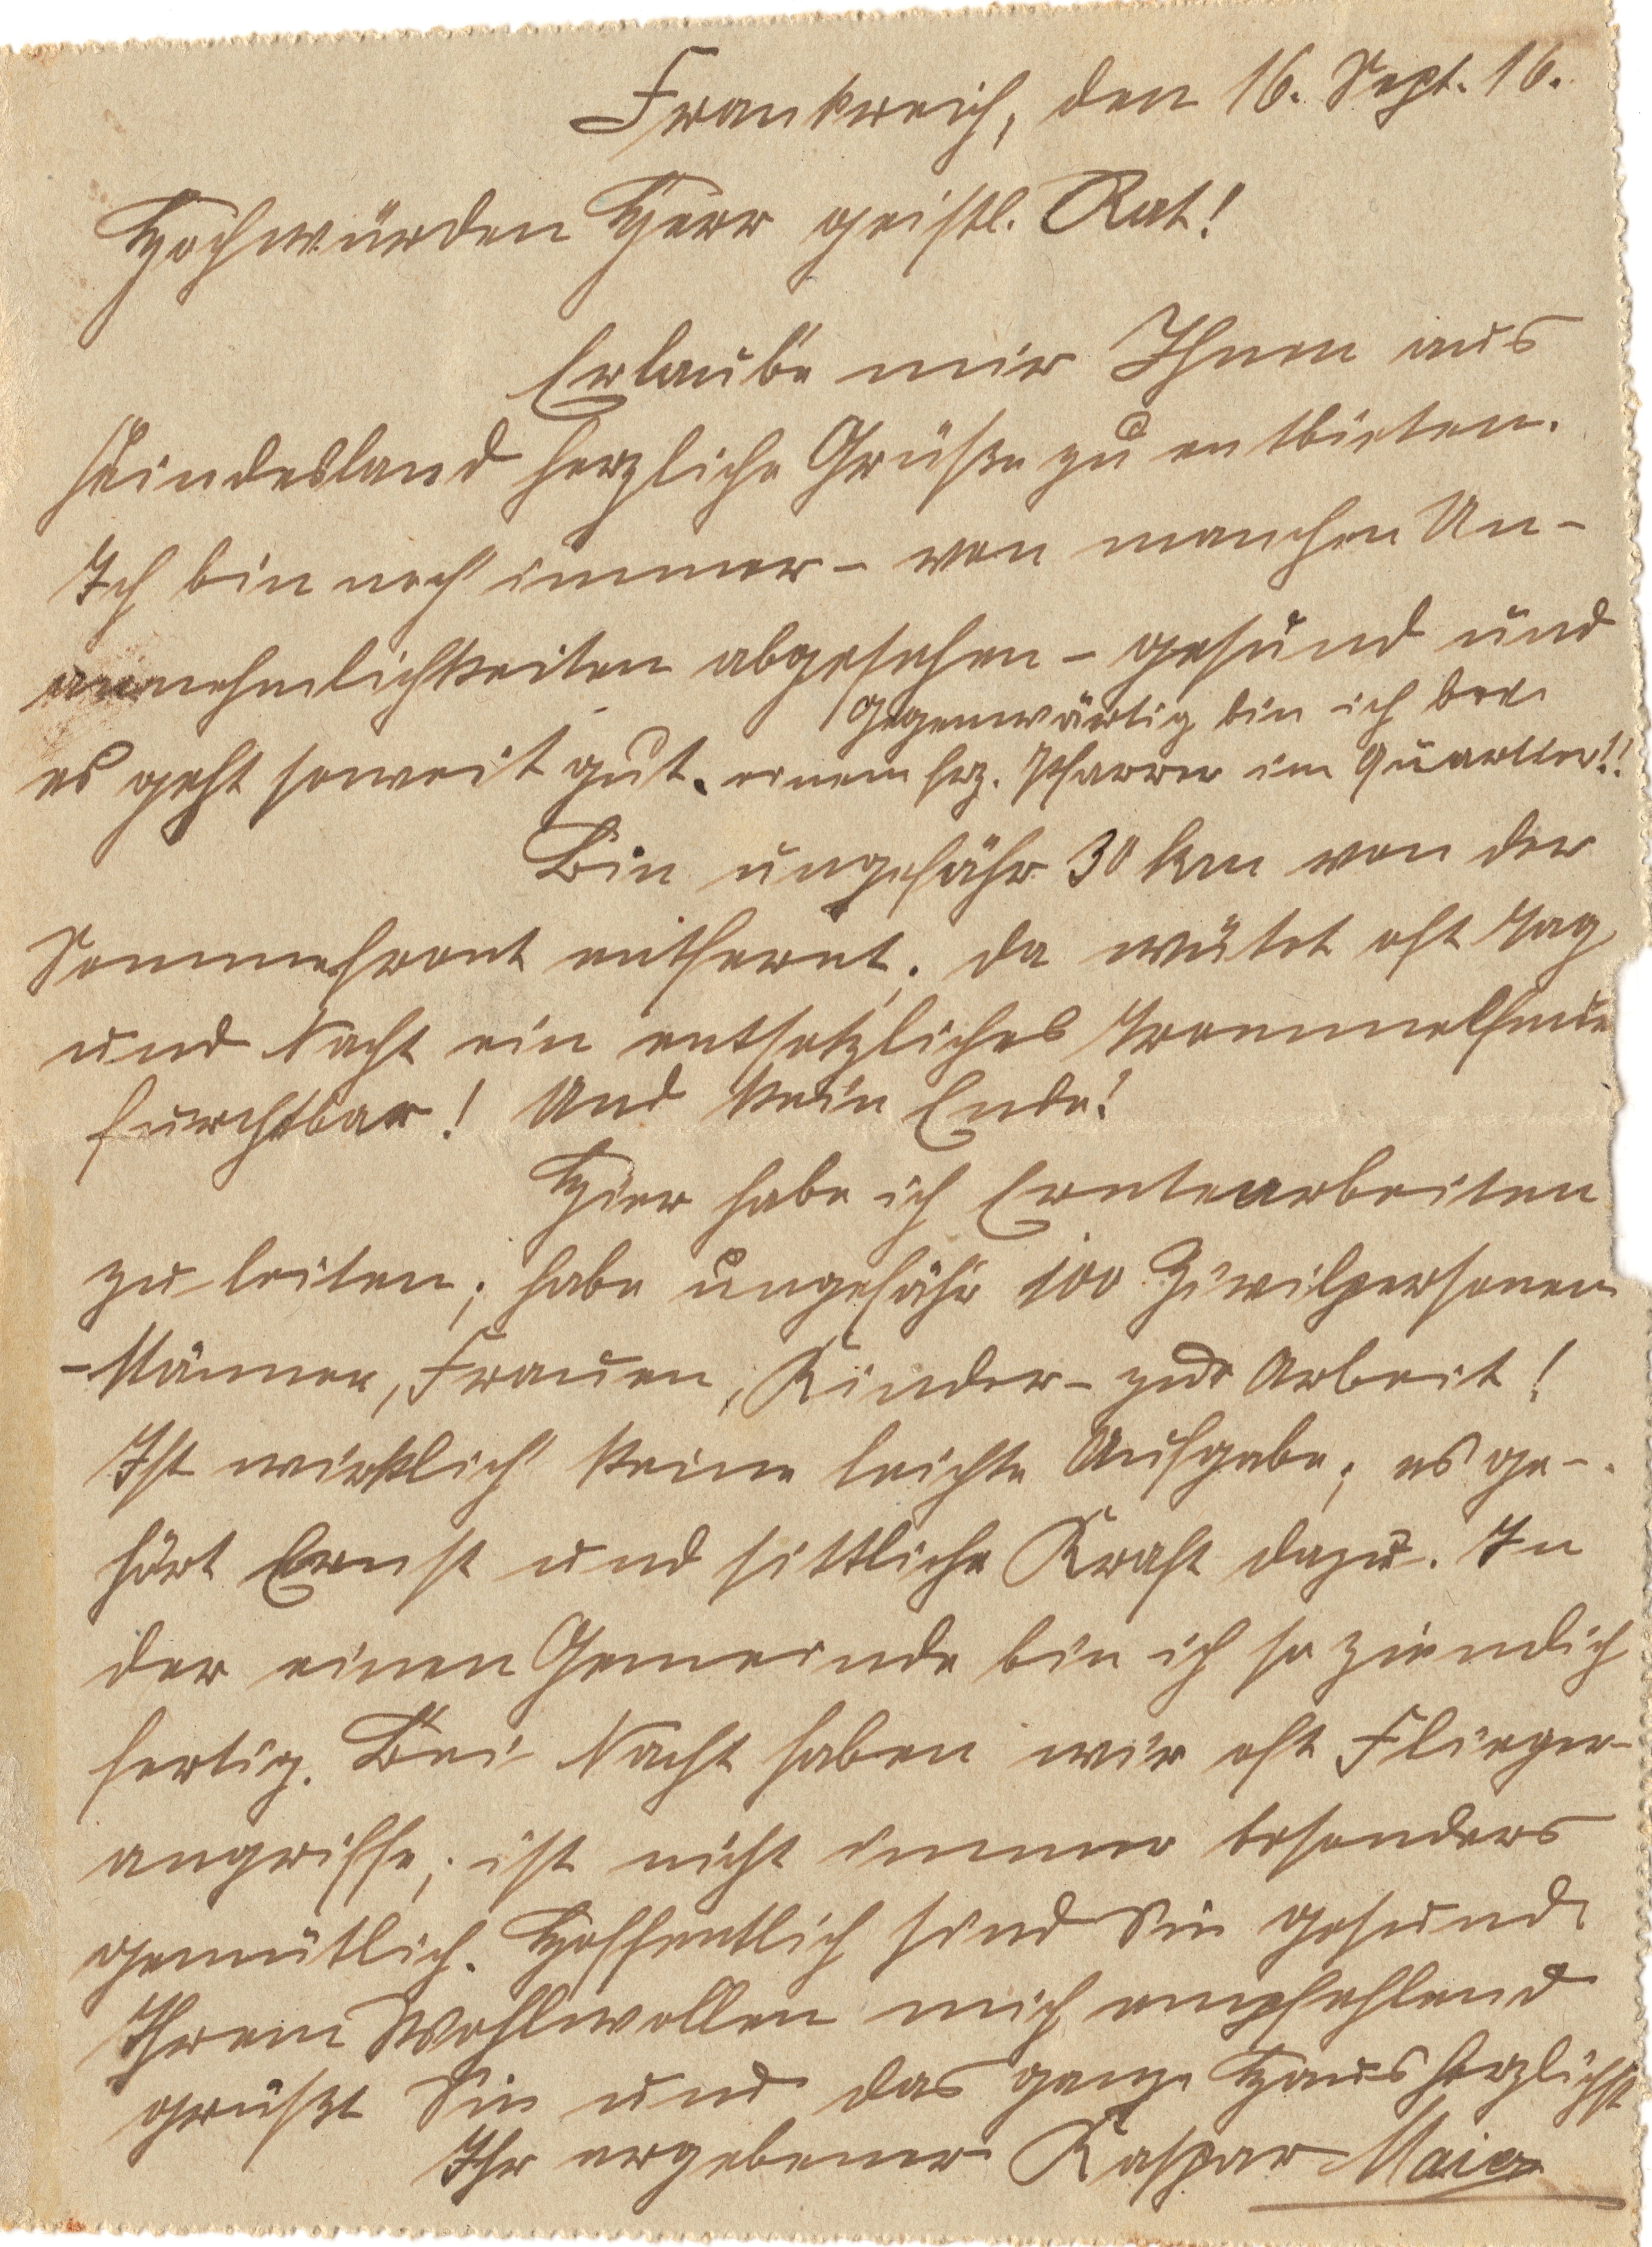 Frankreich, den 16. Sept. 16.
Hochwürden Herr geistl. Rat!
Erlaube mir Ihnen aus
Feindesland herzliche Grüße zu entbieten.
Ich bin noch immer – von manchen Un-
annehmlichkeiten abgesehen – gesund und
gegenwärtig bin ich bei
es geht soweit gut. einem frz. Pfarrer im Quartier!!
Bin ungefähr 30 km von der
Sommefront entfernt. Da wütet oft Tag
und Nacht ein entsetzliches Trommelfeuer
furchtbar! Und kein Ende!
Hier habe ich Erntearbeiten
zu leiten; habe ungefähr 100 Zivilpersonen
– Männer, Frauen, Kinder – zur Arbeit!
Ist wirklich keine leichte Aufgabe; es ge-
hört Ernst und sittliche Kraft dazu. In
der einen Gemeinde bin ich so ziemlich
fertig. Bei Nacht haben wir oft Flieger-
angriffe; ist nicht immer besonders
gemütlich. Hoffentlich sind Sie gesund.
Ihrem Wohlwollen mich empfehlend
grüßt Sie und das ganze Haus herzlichst
Ihr ergebener Kaspar Maier